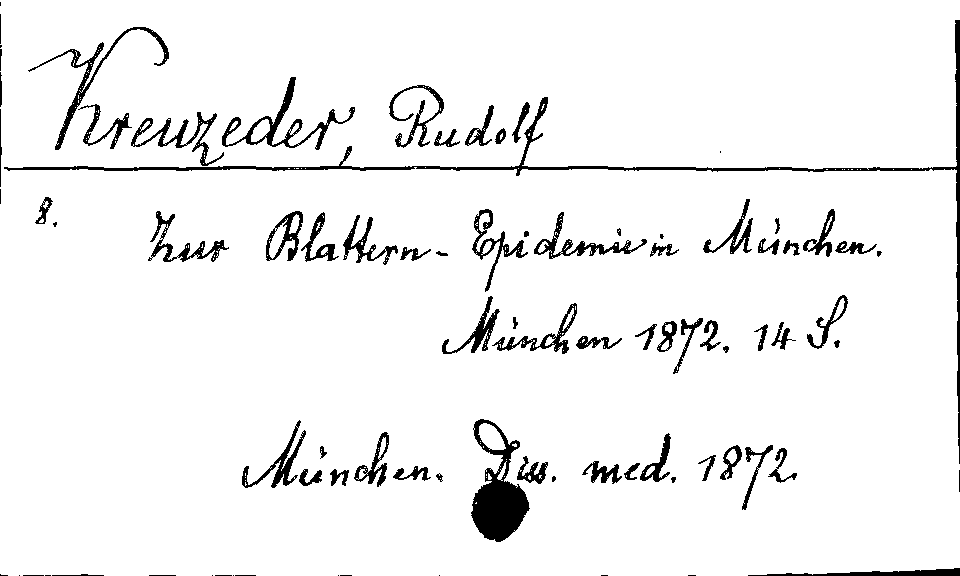 Kreuzeder, Rudolf
8. Zur Blattern-Epidemie in München.
München 1872. 14 S.
München. Diss. med. 1872.